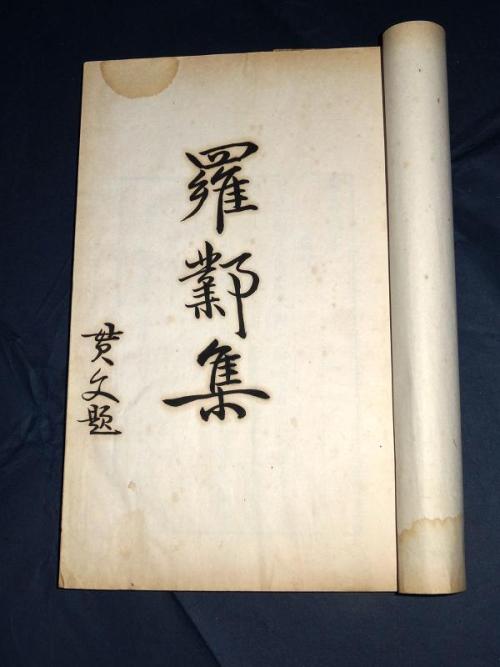 羅鄴集
黄文題